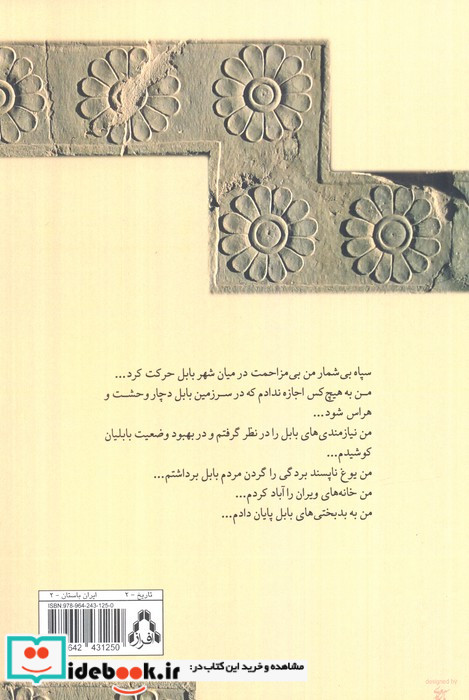 سپاه بی‌شمار من بی‌مزاحمت در میان شهر بابل حرکت کرد...
من به هیچ‌کس اجازه ندادم که در سرزمین بابل دچار وحشت و
هراس شود...
من نیازمندی‌های بابل را در نظر گرفتم و در بهبود وضعیت بابلیان
کوشیدم...
من یوغ ناپسند بردگی را گردن مردم بابل برداشتم...
من خانه‌های ویران را آباد کردم...
من به بدبختی‌های بابل پایان دادم...
تاریخ - ۲
ایران باستان - ۲
ISBN:978-964-243-125-0
642 431250
افراز
idebook.ir
مشاهده و خرید این کتاب در:
designed by